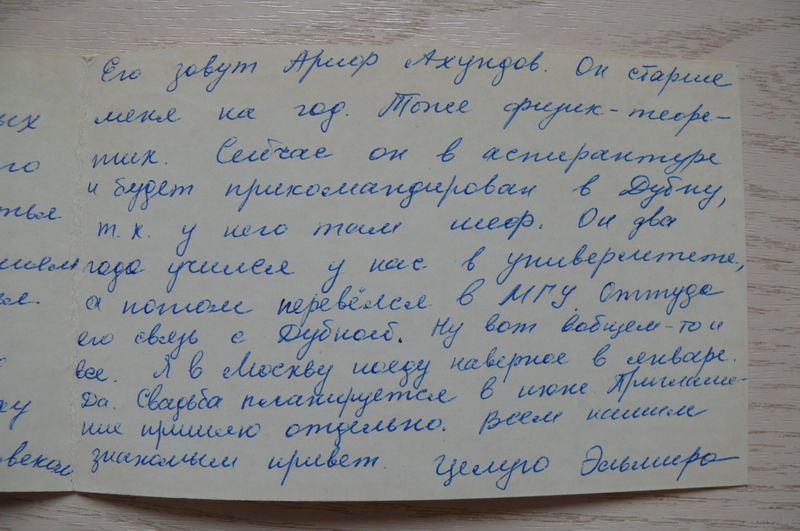 Его зовут Ариф Ахундов. Он старше
ых меня на год. Тоже физик-теоре-
го тик. Сейчас он в аспирантуре
и будет прикомандирован в Дубну,
т.к. у него там шеф. Он два
года учился у нас в университете,
а потом перевёлся в МГУ. Оттуда
его связь с Дубной. Ну вот вобщем-то и
все. Я в Москву поеду наверное в январе.
Да. Свадьба планируется в июне Приглаше-
ние пришлю отдельно. Всем нашим
знакомым привет. Целую Эльмира